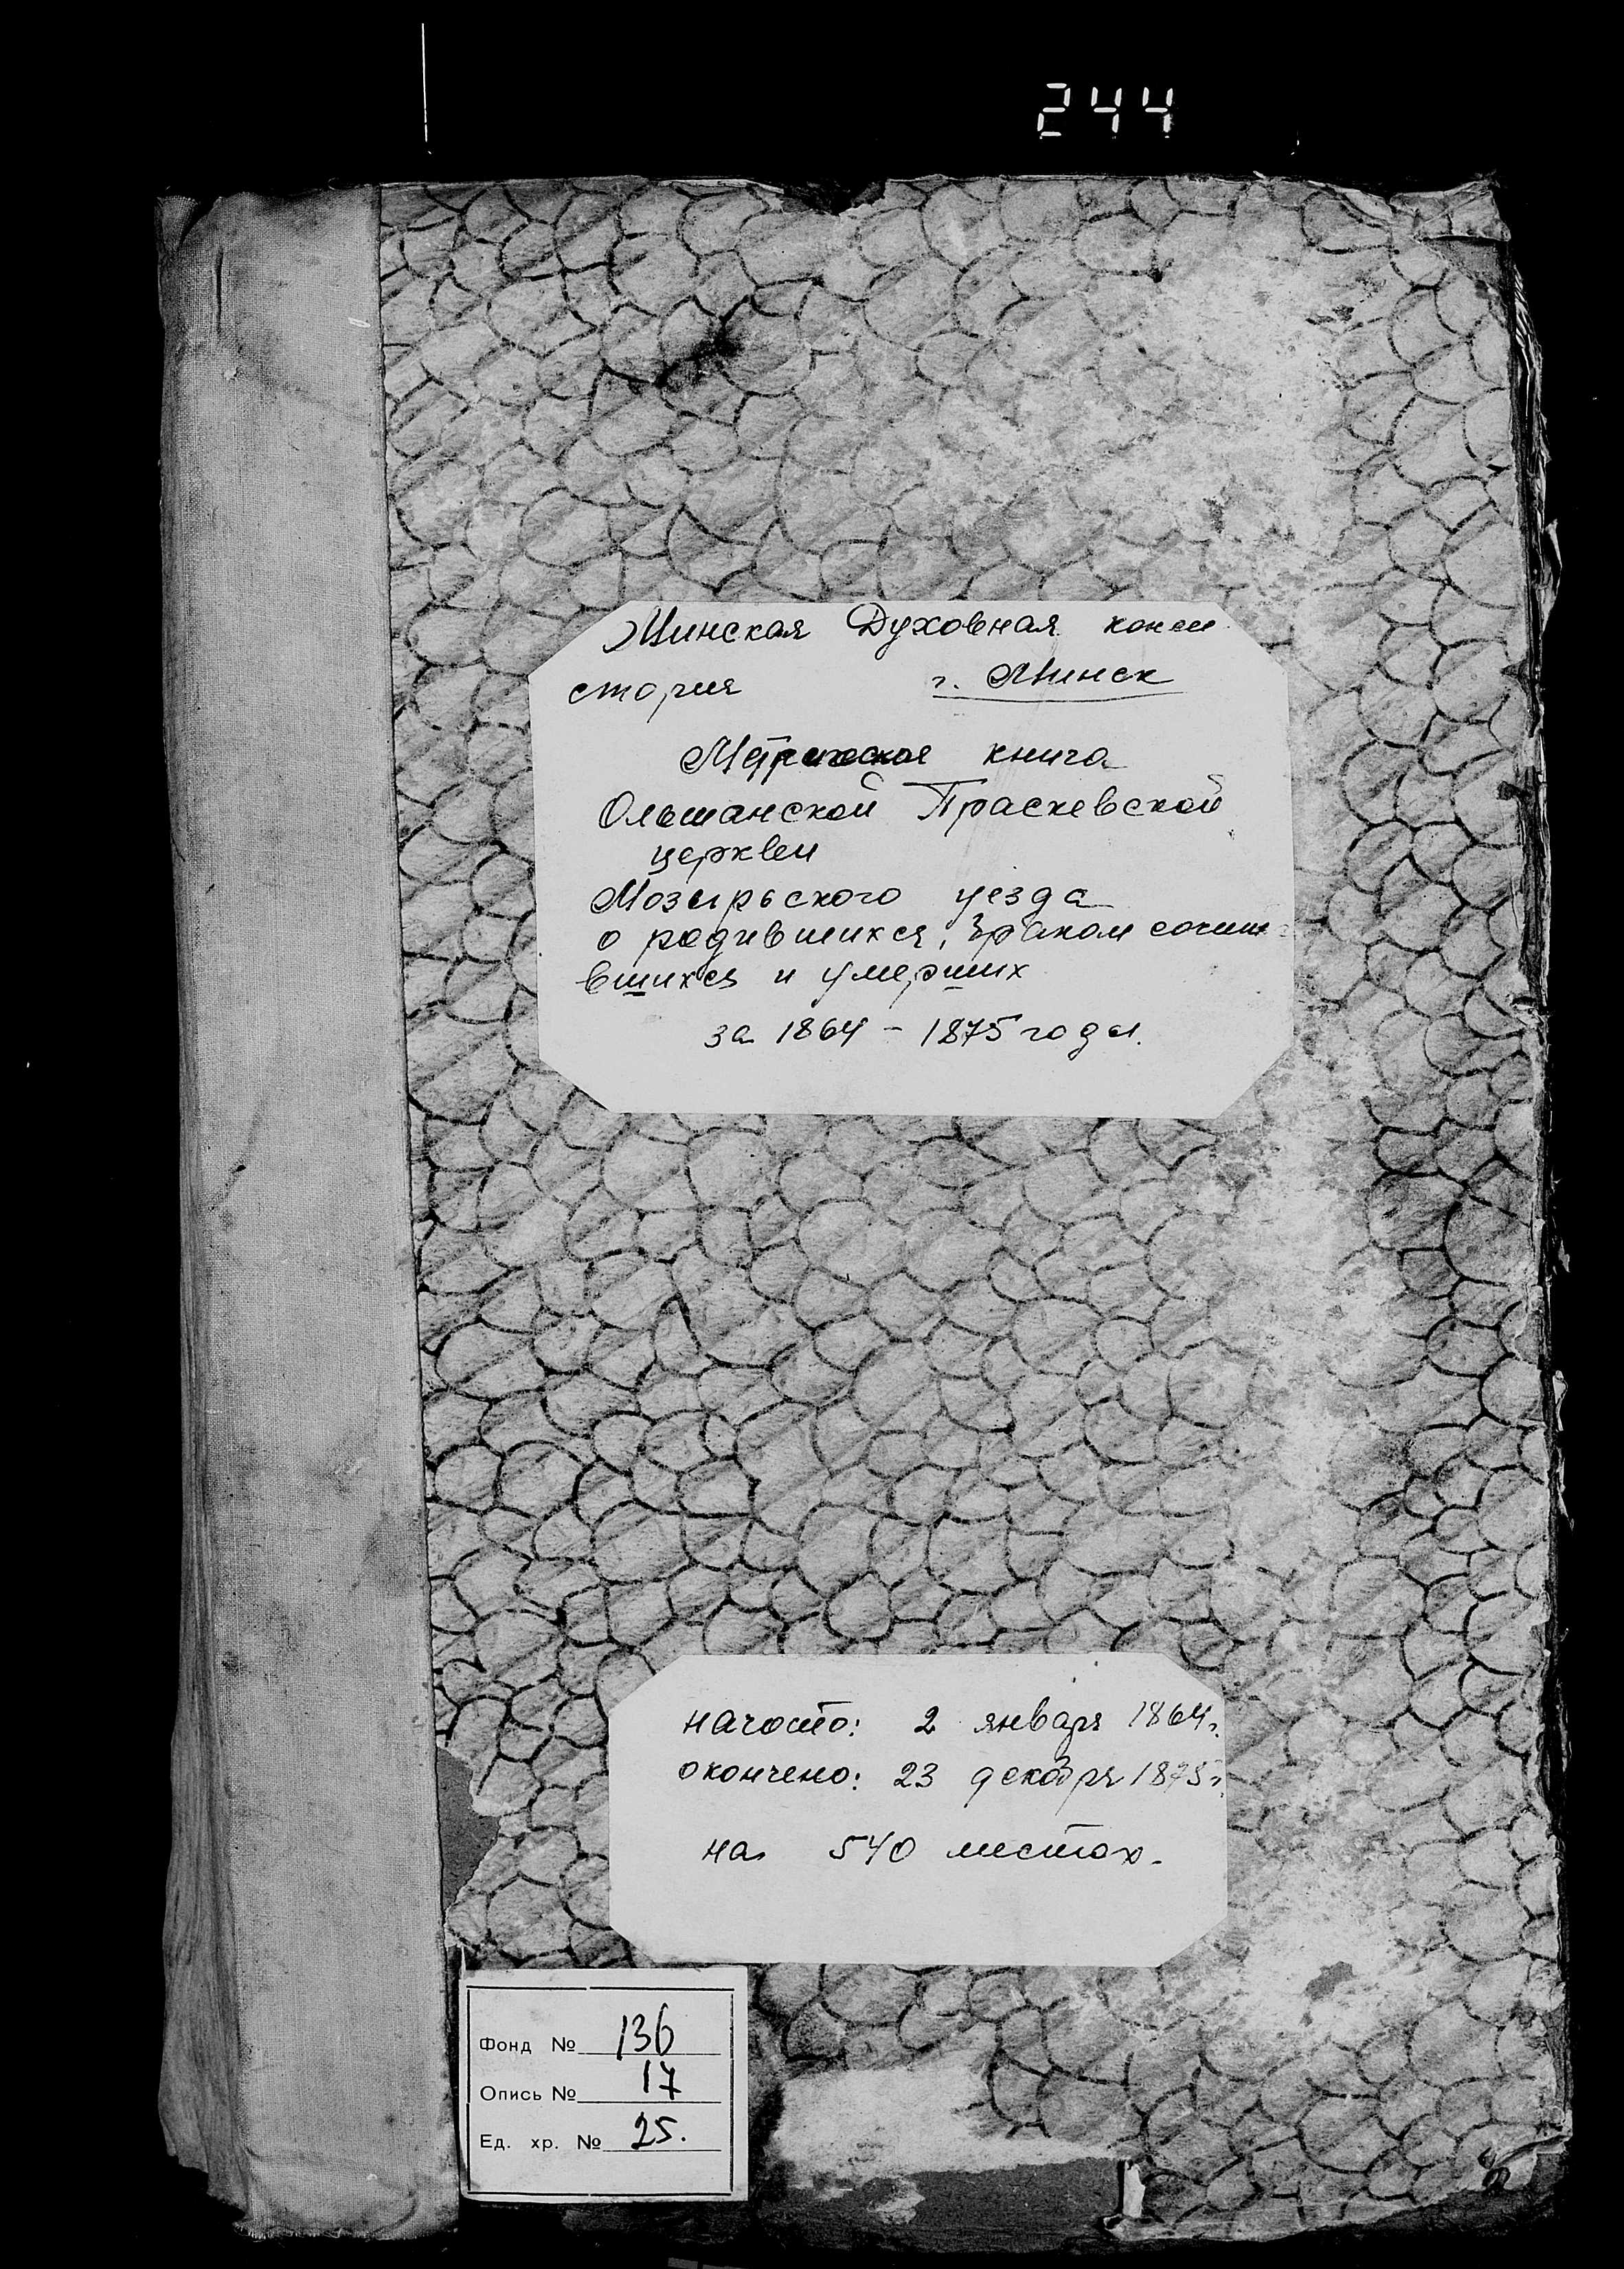 244
Минская Духовная конси
стория г. Минск
Метрическая книга
Ольшанской Праскевской
церкви
Мозырьского уезда
о родившихся, браком сочета
вшихся и умерших
за 1864 - 1875 годы.
начато: 2 января 1864г.
окончено: 23 декабря 1875г.
на 540 листах.
Фонд № 136
Опись № 17
Ед. хр. № 25.